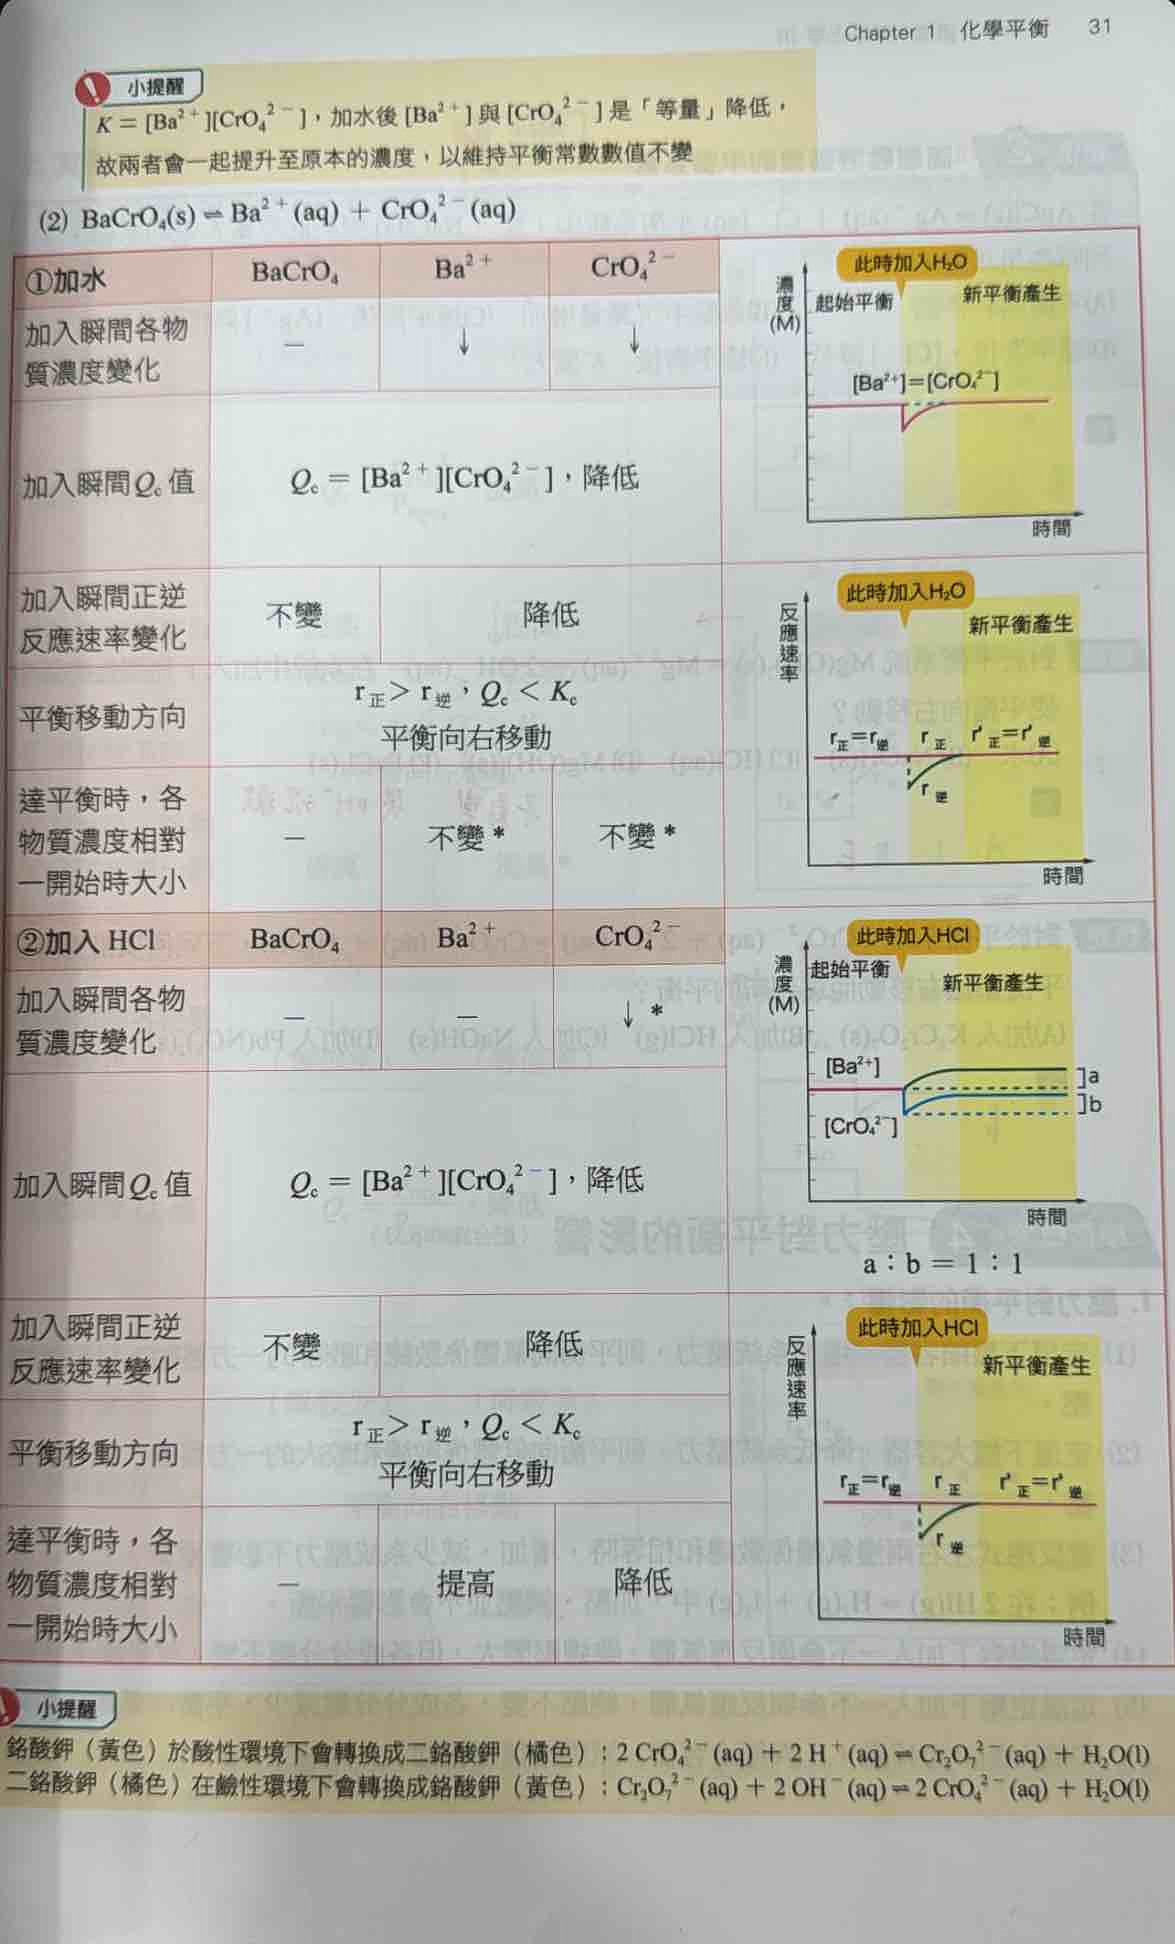 Chapter 1 化學平衡 31
小提醒
K = [Ba²⁺][CrO₄²⁻],加水後 [Ba²⁺] 與 [CrO₄²⁻] 是「等量」降低,
故兩者會一起提升至原本的濃度,以維持平衡常數數值不變
(2) BaCrO₄(s) ⇌ Ba²⁺(aq) + CrO₄²⁻(aq)
①加水 BaCrO₄ Ba²⁺ CrO₄²⁻
加入瞬間各物
質濃度變化
— ↓ ↓
加入瞬間 Qc 值
Qc = [Ba²⁺][CrO₄²⁻],降低
濃度(M)
此時加入H₂O
起始平衡 新平衡產生
[Ba²⁺]=[CrO₄²⁻]
時間
加入瞬間正逆
反應速率變化
不變 降低
平衡移動方向
r正 > r逆,Qc < Kc
平衡向右移動
達平衡時,各
物質濃度相對
一開始時大小
— 不變* 不變*
反應速率
此時加入H₂O
新平衡產生
r正=r逆 r正 r'正=r'逆
r逆
時間
②加入 HCl BaCrO₄ Ba²⁺ CrO₄²⁻
加入瞬間各物
質濃度變化
— — ↓*
加入瞬間 Qc 值
Qc = [Ba²⁺][CrO₄²⁻],降低
濃度(M)
此時加入HCl
起始平衡 新平衡產生
[Ba²⁺]
a
b
[CrO₄²⁻]
時間
a:b = 1:1
加入瞬間正逆
反應速率變化
不變 降低
平衡移動方向
r正 > r逆,Qc < Kc
平衡向右移動
達平衡時,各
物質濃度相對
一開始時大小
— 提高 降低
反應速率
此時加入HCl
新平衡產生
r正=r逆 r正 r'正=r'逆
r逆
時間
小提醒
鉻酸鉀(黃色)於酸性環境下會轉換成二鉻酸鉀(橘色):2 CrO₄²⁻(aq) + 2 H⁺(aq) ⇌ Cr₂O₇²⁻(aq) + H₂O(l)
二鉻酸鉀(橘色)在鹼性環境下會轉換成鉻酸鉀(黃色):Cr₂O₇²⁻(aq) + 2 OH⁻(aq) ⇌ 2 CrO₄²⁻(aq) + H₂O(l)